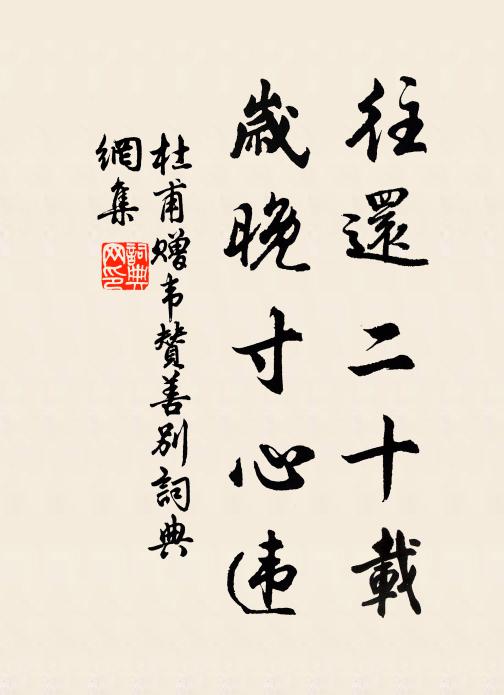 往還二十載
歲晚寸心违
杜甫赠韦贊善别詞典
網集
詞典網印